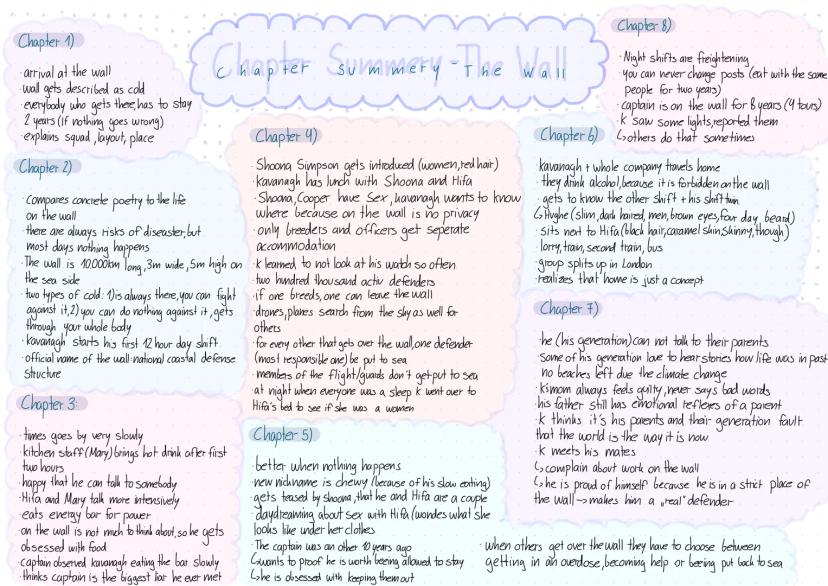 Chapter Summery The Wall
Chapter Summery - The Wall
Chapter 1)
· arrival at the wall
· wall gets described as cold
· everybody who gets there, has to stay
2 years (if nothing goes wrong)
· explains squad, layout, place
Chapter 2)
· compares concrete poetry to the life
on the wall
· there are always risks of diseaster, but
most days nothing happens
· The wall is 10.000km long, 3m wide, 5m high on
the sea side
· two types of cold: 1) is always there, you can fight
against it, 2) you can do nothing against it, gets
through your whole body
· Kavanagh starts his first 12 hour day shift
· official name of the wall: national coastal defense
structure
Chapter 3:
· times goes by very slowly
· kitchen staff (Mary) brings hot drink after first
two hours
· happy that he can talk to somebody
· Hifa and Mary talk more intensively
· eats energy bar for power
· on the wall is not much to think about, so he gets
obsessed with food
· captain observed kavanagh eating the bar slowly
· thinks captain is the biggest liar he ever met
Chapter 4)
· Shoona Simpson gets introduced (women, red hair)
· kavanagh has lunch with Shoona and Hifa
· Shoona, Cooper have sex, kavanagh wants to know
where because on the wall is no privacy
· only breeders and officers get seperate
accommodation
· k learned, to not look at his watch so often
· two hundred thousand activ defenders
· if one breeds, one can leave the wall
· drones, planes search from the sky as well for
others
· for every other that gets over the wall, one defender
(most responsible one) be put to sea
· members of the flight/guards don't get put to sea
· at night when everyone was a sleep k went over to
Hifa's bed to see if she was a women
Chapter 5)
· better when nothing happens
· new nickname is chewy (because of his slow eating)
· gets teased by shoona, that he and Hifa are a couple
· daydreaming about sex with Hifa (wondes what she
looks like under her clothes
· The captain was an other 10 years ago
↳ wants to proof he is worth beeing allowed to stay
↳ he is obsessed with keeping them out
· when others get over the wall they have to choose between
getting in an overdose, becoming help or beeing put back to sea
Chapter 6)
· kavanagh + whole company travels home
· they drink alcohol, because it is forbidden on the wall
· gets to know the other shift + his shift twin
↳ Hughe (slim, dark haired, men, brown eyes, four day, beard)
· sits next to Hifa (black hair, caramel skin, skinny, though)
· lorry, train, second train, bus
· group splits up in London
· realizes that home is just a concept
Chapter 7)
· he (his generation) can not talk to their parents
· Some of his generation love to hear stories how life was in past
· no beaches left due the climate change
· k's mom always feels guilty, never says bad words
· his father still has emotional reflexes of a parent
· k thinks it's his parents and their generation fault
that the world is the way it is now
· k meets his mates
↳ complain about work on the wall
↳ he is proud of himself because he is in a strict place of
the wall → makes him a „real" defender
Chapter 8)
· Night shifts are freightening
· you can never change posts (eat with the same
people for two years)
· captain is on the wall for 8 years (4 tours)
· k saw some lights, reported them
↳ others do that sometimes